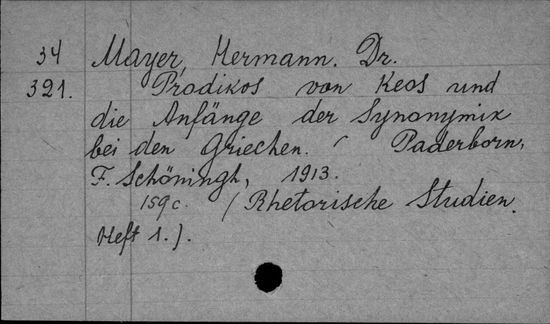 34 Mayer, Hermann. Dr.
391. Prodikos von Keos und
die Anfänge der Synonymik
bei den Griechen. Paderborn,
F. Schöningh, 1913.
159c. (Rhetorische Studien.
Heft 1.).